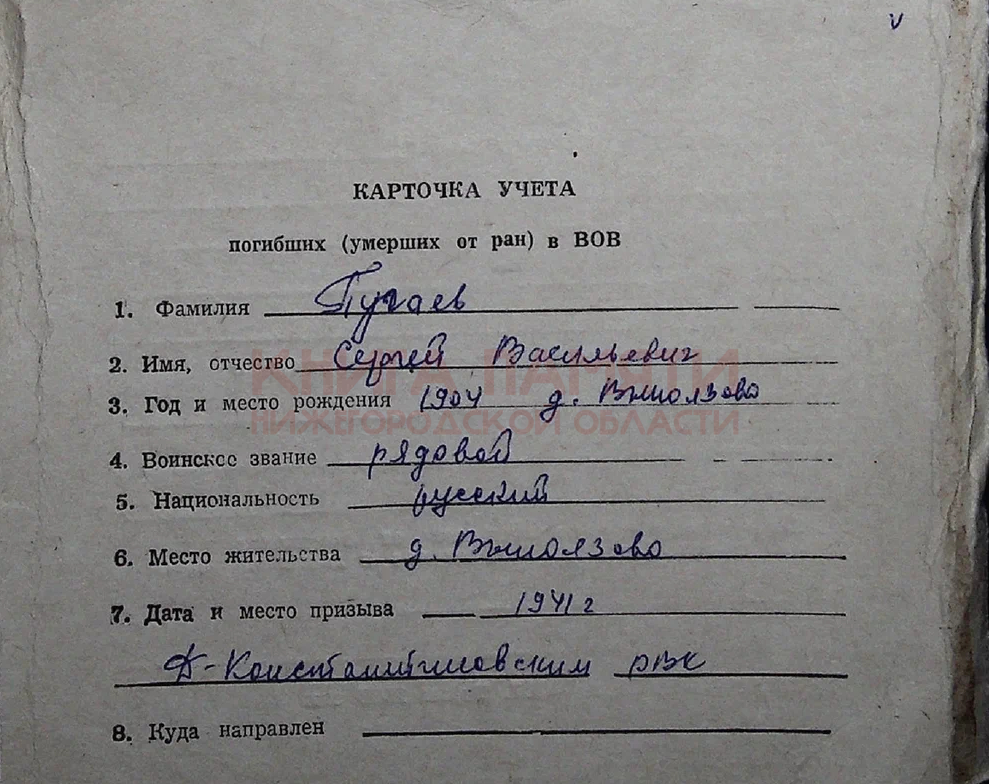 КАРТОЧКА УЧЕТА
погибших (умерших от ран) в ВОВ
1. Фамилия Пугаев
2. Имя, отчество Сергей Васильевич
КНИГА ПАМЯТИ
3. Год и место рождения 1904 д. Выползово
НИЖЕГОРОДСКОЙ ОБЛАСТИ
4. Воинское звание рядовой
5. Национальность русский
6. Место жительства д. Выползово
7. Дата и место призыва 1941 г
Д-Константиновским РВК
8. Куда направлен